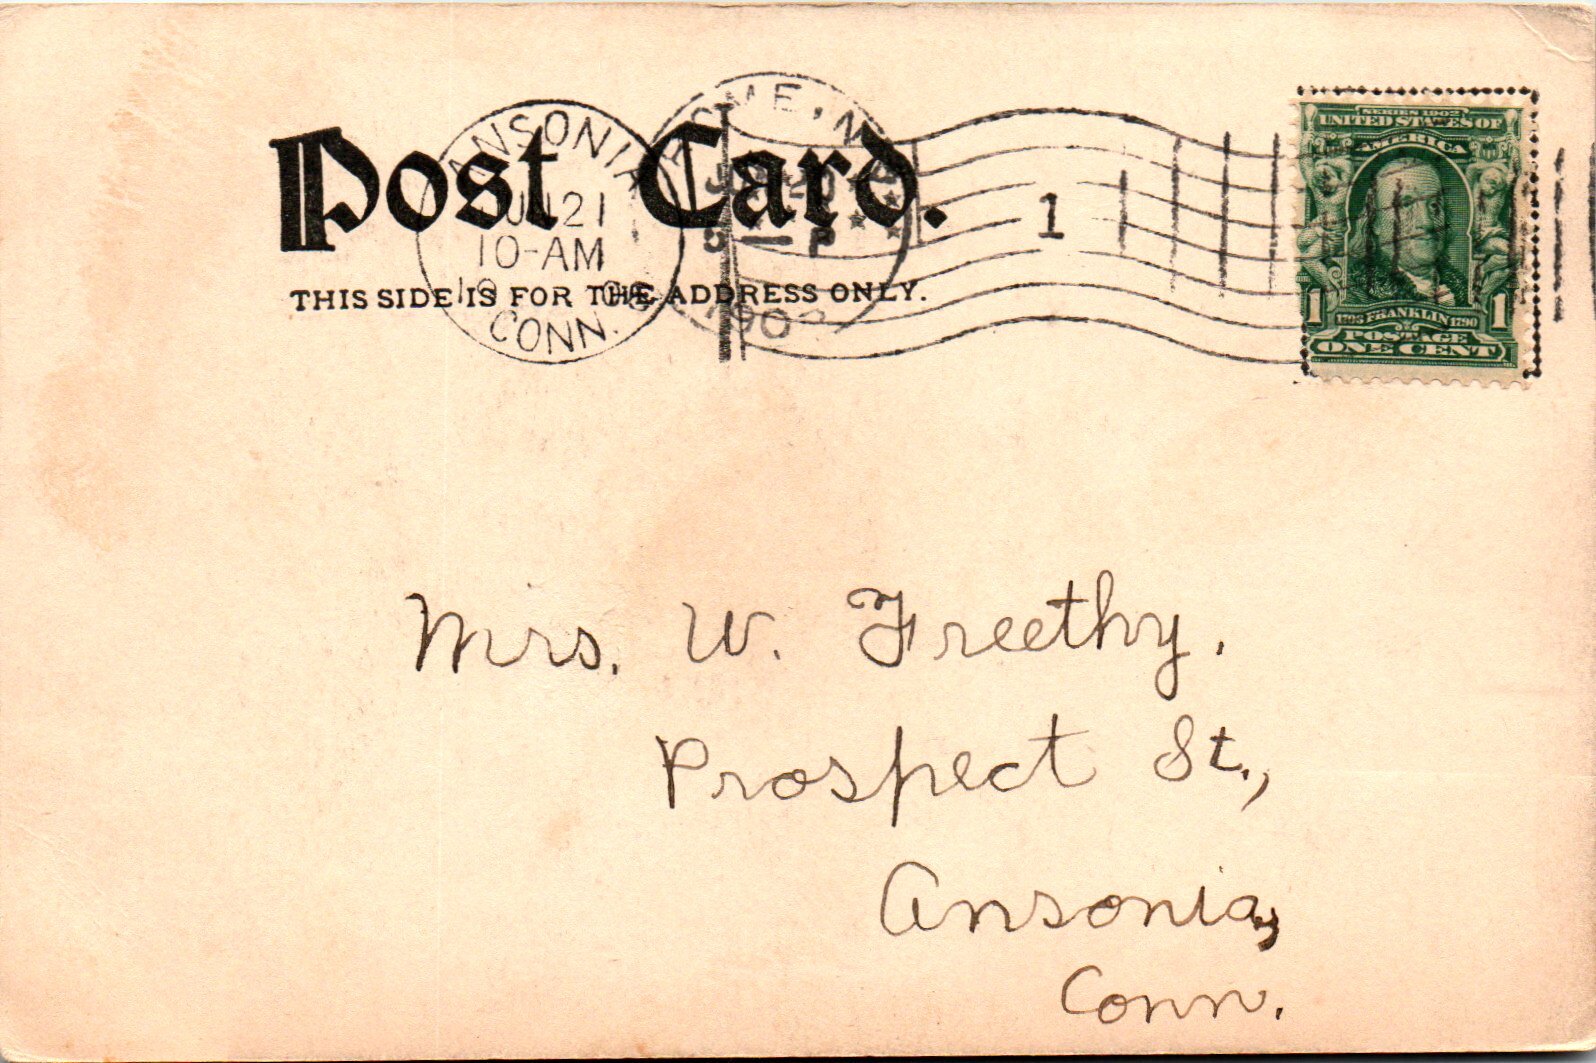 Post Card.
THIS SIDE IS FOR THE ADDRESS ONLY.
ANSONIA
21
10-AM
CONN.
1
SERIES 1902
UNITED STATES OF
AMERICA
1706 FRANKLIN 1790
POSTAGE
1 ONE CENT 1
Mrs. W. Freethy.
Prospect St.,
Ansonia,
Conn.